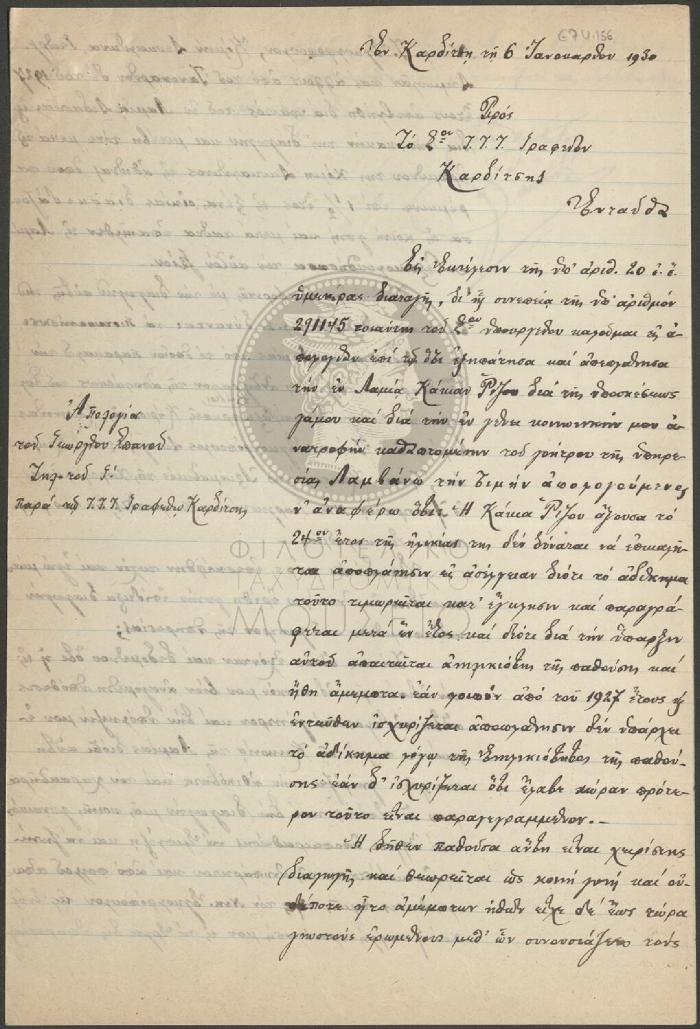 674.156
Ἐν Καρδίτσῃ τῇ 6 Ἰανουαρίου 1930
Πρός
Τὸ 2ον Τ.Τ.Τ. Γραφεῖον
Καρδίτσης
Ἐνταῦθα
Εἰς ἐκτέλεσιν τῆς ὑπ' ἀριθ. 20 ἐ.ἔ.
ὑμετέρας διαταγῆς, δι' ἧς συνεπείᾳ τῆς ὑπ' ἀριθμὸν
291145 τοιαύτης τοῦ Σου Ὑπουργείου καλοῦμαι εἰς ἀ-
πολογίαν ἐπὶ τῷ ὅτι ἐξηπάτησα καὶ ἀπεπλάνησα
τὴν ἐν Λαμίᾳ Κάκιαν Ρίζου διὰ τῆς ὑποσχέσεως
γάμου καὶ διὰ τὴν ἐν γένει κοινωνικήν μου ἀ-
ναστροφὴν καθαπτομένην τοῦ γοήτρου τῆς ὑπηρε-
σίας Λαμβάνω τὴν τιμὴν ἀπολογούμενος
ν' ἀναφέρω ὅτι: Ἡ Κάκια Ρίζου ἄγουσα τὸ
24ον ἔτος τῆς ἡλικίας της δὲν δύναται νὰ ἐπικαλῆ-
ται ἀποπλάνησιν εἰς ἀσέλγειαν διότι τὸ ἀδίκημα
τοῦτο τιμωρεῖται κατ' ἔγκλησιν καὶ παραγρά-
φεται μετὰ ἓν ἔτος καὶ διότι διὰ τὴν ὕπαρξιν
αὐτοῦ ἀπαιτεῖται ἀνηλικιότης τῆς παθούσης καὶ
ἤθη ἄμεμπτα. ἐὰν λοιπὸν ἀπὸ τοῦ 1927 ἔτους καὶ
ἐντεῦθεν ἰσχυρίζεται ἀποπλάνησιν δὲν ὑπάρχει
τὸ ἀδίκημα λόγῳ τῆς ἐνηλικιότητος τῆς παθού-
σης ἐὰν δ' ἰσχυρίζεται ὅτι ἔλαβε χώραν πρότε-
ρον τοῦτο εἶναι παραγεγραμμένον.—
Ἡ δῆθεν παθοῦσα αὕτη εἶναι χειρίστης
διαγωγῆς καὶ θεωρεῖται ὡς κοινὴ γυνὴ καὶ οὐ-
δέποτε ἦτο ἀμέμπτων ἠθῶν εἶχε δὲ ἕως τώρα
γνωστοὺς ἐρωμένους μεθ' ὧν συνουσιάζετο τοὺς
Ἀπολογία
τοῦ Γεωργίου Σπανοῦ
Τηλ-τοῦ Γ'
παρὰ τῷ Τ.Τ.Τ. Γραφείῳ Καρδίτσης
ΦΙΛΟΤΕΛΙΚΟ
ΤΑΧΥΔΡΟΜΙΚΟ
ΜΟΥΣΕΙΟ